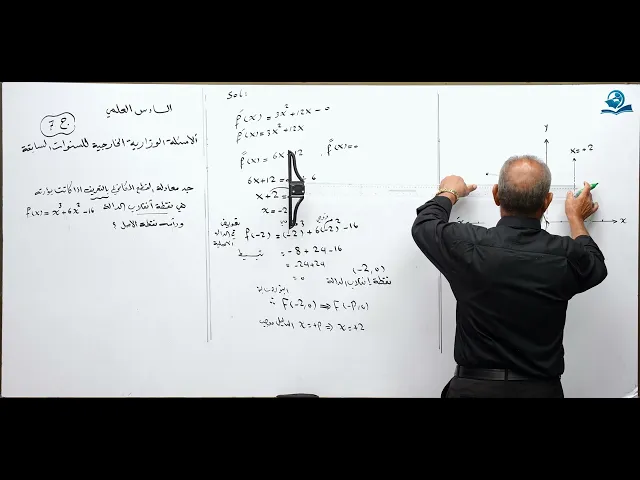 السادس العلمي
ج 7
الأسئلة الوزارية الخارجية للسنوات السابقة
جد معادلة القطع المكافئ بالتعريف اذا كانت بؤرته
هي نقطة أنقلاب الدالة
f(x) = x³+6x²-16
ورأسه نقطة الاصل ؟
Sol:
f́(x) = 3x²+12x-0
f́(x) = 3x²+12x
f̋(x) = 6x+12 , f̋(x)=0
6x+12 = 0 ÷ 6
x+2 =
x = -2
تعويض في الدالة الأصلية
f(-2) = (-2)³+6(-2)²-16
= -8+24-16
= -24+24
= 0
(-2,0)
نقطة إنقلاب الدالة
∴ F(-2,0) ⇒ F(-p,0)
الدليل x=+p ⇒ x=+2
y
x=+2
x